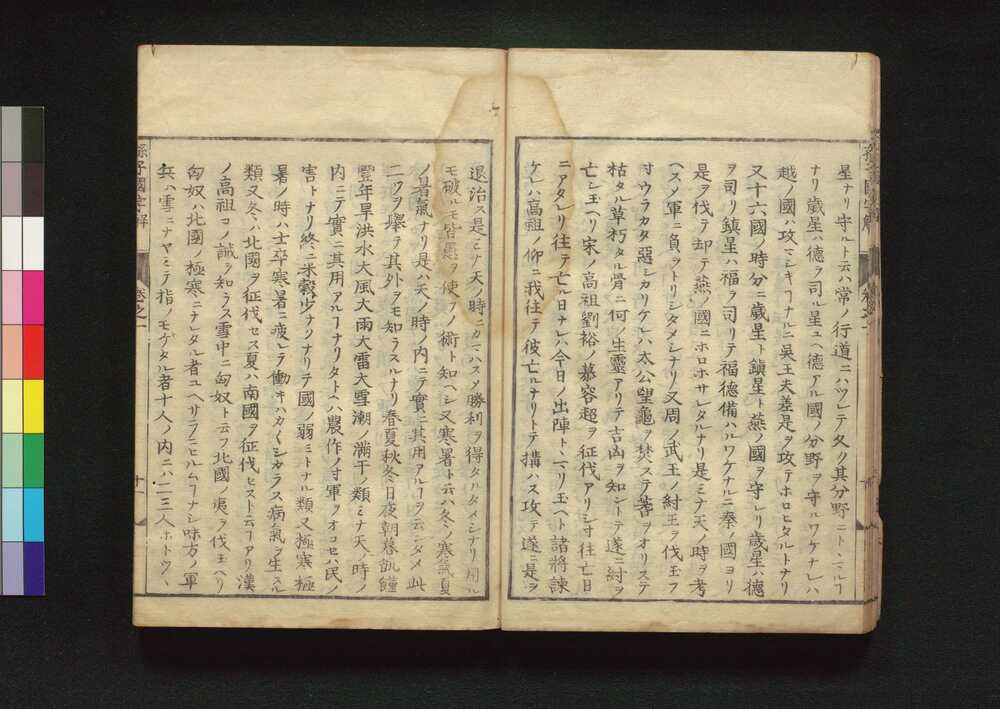 星ナリ守ルト云ハ常ノ行道ニハツレテ久ク其分野ニトヽマルヿ
ナリ歳星ハ德ヲ司ル星ユヘ德アル國ノ分野ヲ守ルワケナレハ
越ノ國ハ攻マシキヿナルニ吳王夫差是ヲ攻テホロヒタルトナリ
又十六國ノ時分ニ歳星ト鎮星ト燕ノ國ヲ守レリ歳星ハ德
ヲ司リ鎮星ハ福ヲ司リテ福德備ハルワケナルニ秦ノ國ヨリ
是ヲ伐テ却テ燕ノ國ニホロホサレタルナリ是ミナ天ノ時ヲ考
ヘスメ軍ニ負ヲトリシタメシナリ又周ノ武王ノ紂王ヲ伐玉フ
寸ウラカタ惡シカリケレハ太公望龜ヲ焚ステ蓍ヲオリステ
枯タル草朽タル骨ニ何ノ生靈アリテ吉凶ヲ知ントテ遂ニ紂ヲ
亡シ玉ヘリ宋ノ高祖劉裕ノ慕容超ヲ征伐アリシ寸往亡日
ニアタレリ往テ亡ル日ナレハ今日ノ出陣トヽマリ玉ヘト諸將諫
ケレハ高祖ノ仰ニ我往テ彼亡ルナリトテ搆ハス攻テ遂ニ是ヲ
孫子國字解
卷之一
退治ス是ミナ天ノ時ニカマハスメ勝利ヲ得タルタメシナリ用ル
モ破ルモ皆愚ヲ使フノ術ト知ヘシ又寒暑ト云ハ冬ノ寒氣夏
ノ暑氣ナリ是ハ天ノ時ノ内ニテ實ニ其用アルヿヲ云ンタメ此
二ツヲ擧ヲ其外ヲモ知ラスルナリ春夏秋冬日夜朝暮飢饉
豐年旱洪水大風大雨大雷大雪潮ノ滿干ノ類ミナ天ノ時ノ
内ニテ實ニ其用アルヿナリタトヘハ農作ノ寸軍ヲオコセハ民ノ
害トナリ終ニ米穀少ナリナリテ國ノ弱ミトナル類又極寒極
暑ノ時ハ士卒寒暑ニ疲レテ働キハカ〱シカラス病氣ヲ生スル
類又冬ハ北國ヲ征伐セス夏ハ南國ヲ征伐セスト云ヿアリ漢
ノ高祖コノ誡ヲ知ラス雪中ニ匈奴ト云フ北國ノ夷ヲ伐玉ヘリ
匈奴ハ北國ノ極寒ニナレタル者ユヘサラニヒルムヿナシ味方ノ軍
兵ハ雪ニナヤミテ指ノモゲタル者十人ノ内ニハ二三人ホトツヽ
孫子國字解
卷之一
十一